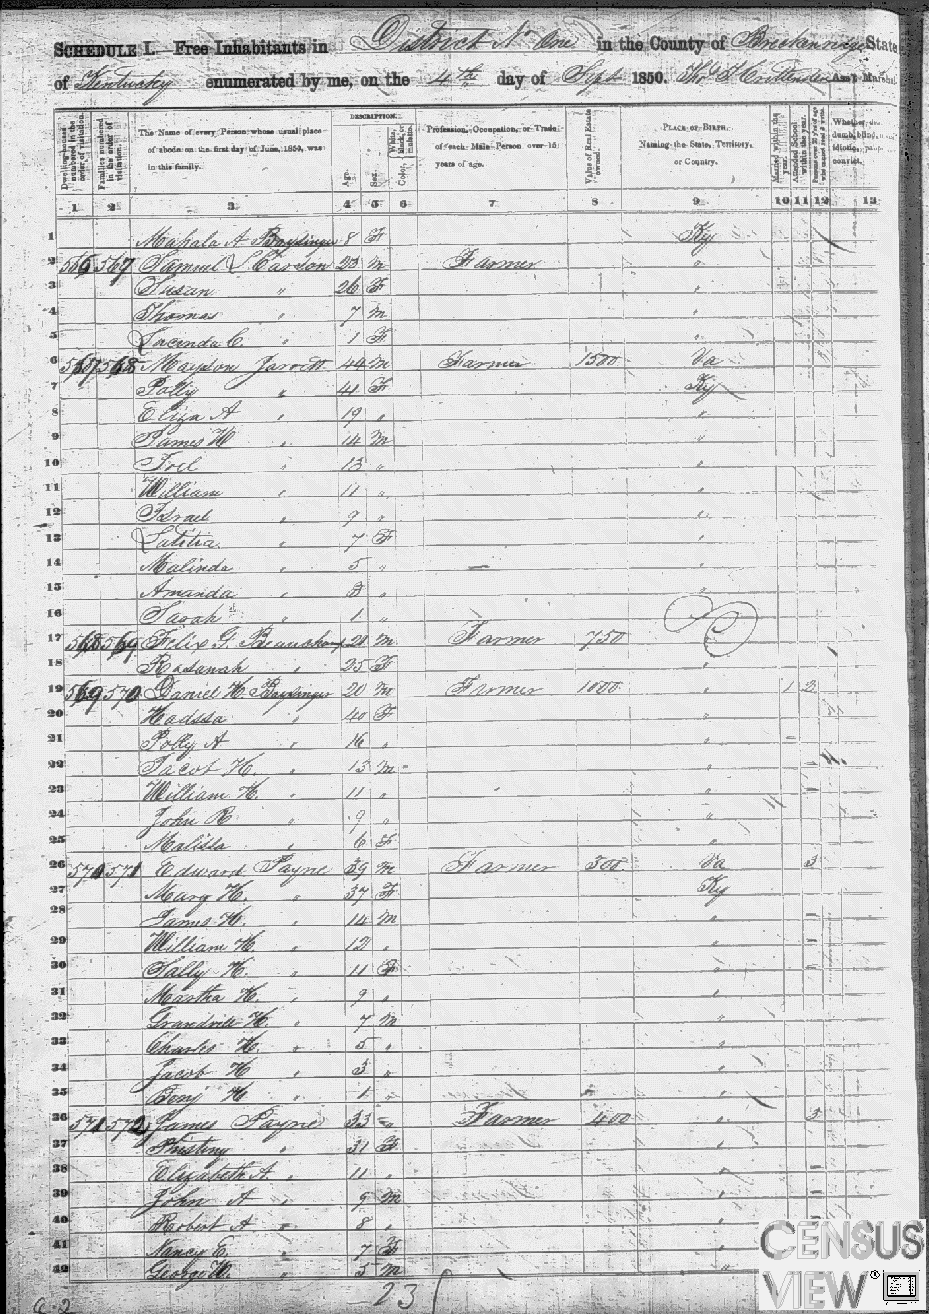 SCHEDULE I.—Free Inhabitants in District No One in the County of Breckenridge State
of Kentucky enumerated by me, on the 4th day of Sept 1850. Thos Ass't Marshal.
Dwelling-houses numbered in the order of visitation.
Families numbered in the order of visitation.
The Name of every Person whose usual place of abode on the first day of June, 1850, was in this family.
DESCRIPTION.
Age.
Sex.
Color, White, black, or mulatto.
Profession, Occupation, or Trade of each Male Person over 15 years of age.
Value of Real Estate owned.
PLACE OF BIRTH. Naming the State, Territory, or Country.
Married within the year.
Attended School within the year.
Persons over 20 y'rs of age who cannot read & write.
Whether deaf and dumb, blind, insane, idiotic, pauper, or convict.
1 2 3 4 5 6 7 8 9 10 11 12 13
1 Mahala A Baysinger 8 F Ky
2 566 567 Samuel L Carson 23 m Farmer "
3 Susan " 26 F "
4 Thomas " 7 m "
5 Lucinda C. " 1 F "
6 567 568 Jarrett 44 m Farmer 1500 Va
7 Polly " 41 F Ky
8 Eliza A " 19 " "
9 James H " 14 m "
10 Joel " 13 " "
11 William " 11 " "
12 Israel " 9 " "
13 Latitia " 7 F "
14 Malinda " 5 " "
15 Amanda " 3 " "
16 Sarah " 1 "
17 568 569 Felix G. Beauchamp 21 m Farmer 750
18 Rosanah " 25 F "
19 569 570 Daniel H. Baysinger 20 m Farmer 1000 " 1 2
20 Hadssa " 40 F "
21 Polly A " 16 " "
22 Jacob H. " 13 m "
23 William H. " 11 " "
24 John R " 9 " "
25 Malissa " 6 F "
26 570 571 Edward Payne 39 m Farmer 300 Va 3
27 Mary H. " 37 F Ky
28 James H. " 14 m "
29 William H. " 12 " "
30 Sally H. " 11 F "
31 Martha H. " 9 " "
32 Grandville H. " 7 m "
33 Charles H. " 5 " "
34 Jacob H " 3 " "
35 Benj H " 1 " "
36 571 572 James Payne 33 Farmer 400 " 5
37 " 31 F "
38 Elizabeth A. " 11 " "
39 John A " 9 m "
40 Robert A " 8 " "
41 Nancy E. " 7 F "
42 George W. " 5 m "
23
CENSUS
VIEW®